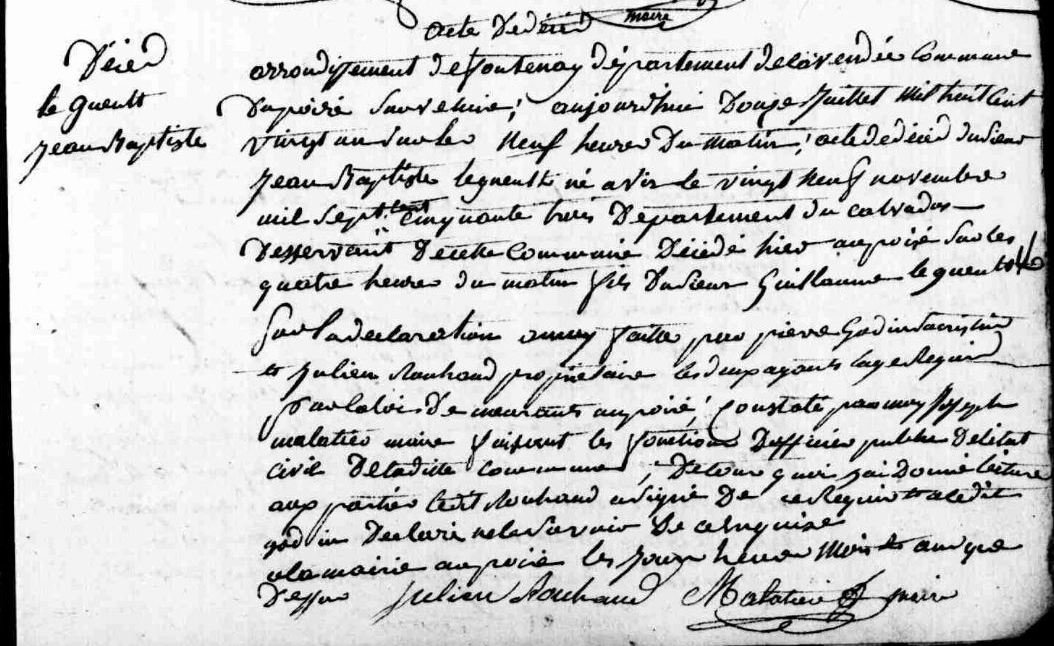 maire
acte de décéd
Décéd
le Gueult
jean Baptiste
arrondissement de fontenay département de lavendée Commune
Dupoiré Sur velluire; aujourdhui Douze juillet Mil huit Cent
vingt un Sur les Neuf heures Du Matin; acte de décéd du Sieur
jean Baptiste legueult né a vire le vingt Neuf novembre
mil Sept Cent Cinquante trois Département du calvados
Desservant De cette Commune Décédé hier au poiré Sur les
quatre heures du matin fils Du Sieur Guillaume legueult
Sur la declaration a moy faitte par pierre Godin Sacristin
et julien Rouhaud propriétaire les deux ayants l'age Requis
par la loi Demeurants au poiré; Constaté par moy joseph
malatier maire faisant les fonctions Dofficier public De létat
civil De laditte Commune; De tour quoi jai Donné lecture
aux parties le dt Rouhaud a signé De ce Requis et a ledit
godin Declaré ne le savoir De ce enquise
a la mairie au poiré les jour heure Mois et an que
Dessus Julien Rouhaud Malatier maire